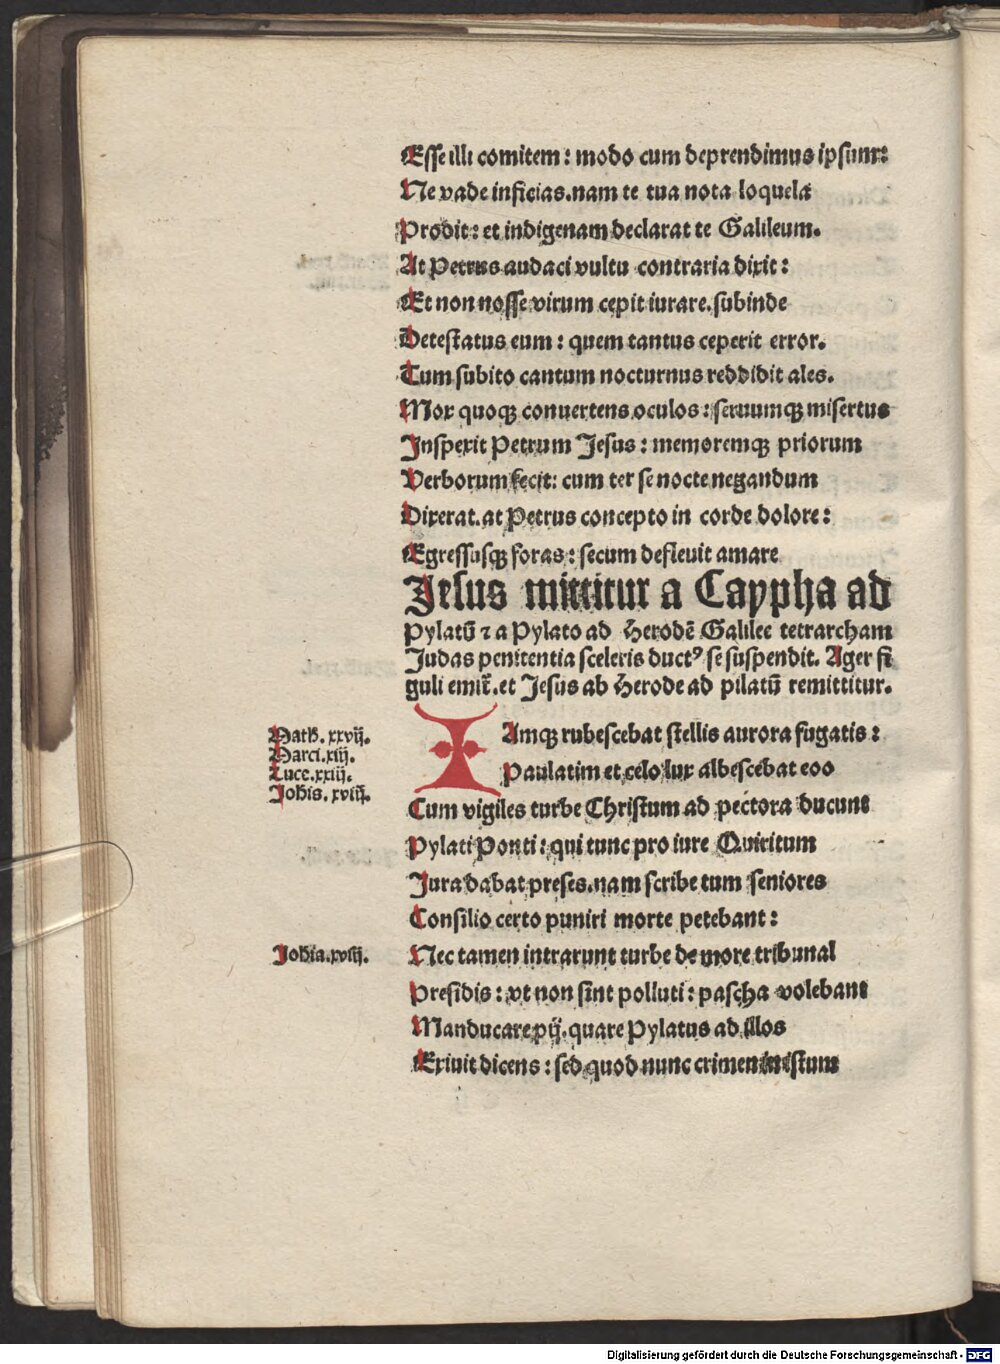 Esse illi comitem: modo cum deprendimus ipsum:
Ne vade inficias. nam te tua nota loquela
Prodit: et indigenam declarat te Galileum.
At Petrus audaci vultu contraria dixit:
Et non nosse virum cepit iurare. subinde
Detestatus eum: quem tantus ceperit error.
Tum subito cantum nocturnus reddidit ales.
Mox quoqꝫ conuertens oculos: seruumqꝫ misertus
Inspexit Petrum Jesus: memoremqꝫ priorum
Verborum fecit: cum ter se nocte negandum
Dixerat. at Petrus concepto in corde dolore:
Egressusqꝫ foras: secum defleuit amare
Jesus mittitur a Cayphа ad
Pylatū ⁊ a Pylato ad Herodē Galilee tetrarcham
Judas penitentia sceleris ductꝰ se suspendit. Ager fi
guli emit̄. et Jesus ab Herode ad pilatū remittitur.
Math. xxvij.
Marci. xiij.
Luce. xxiij.
Johis. xviij.
IAmqꝫ rubescebat stellis aurora fugatis:
Paulatim et celo lux albescebat eoo
Cum vigiles turbe Christum ad pectora ducunt
Pylati Ponti: qui tunc pro iure Quiritum
Jura dabat preses. nam scribe tum seniores
Consilio certo puniri morte petebant:
Johia. xviij.
Nec tamen intrarunt turbe de more tribunal
Presidis: vt non sint polluti: pascha volebant
Manducare pij. quare Pylatus ad illos
Exiuit dicens: sed quod nunc crimen in istum
Digitalisierung gefördert durch die Deutsche Forschungsgemeinschaft - DFG